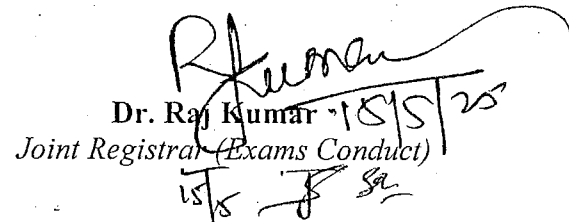 RKumar
Dr. Raj Kumar 15/5/25
Joint Registrar (Exams Conduct)
15/5